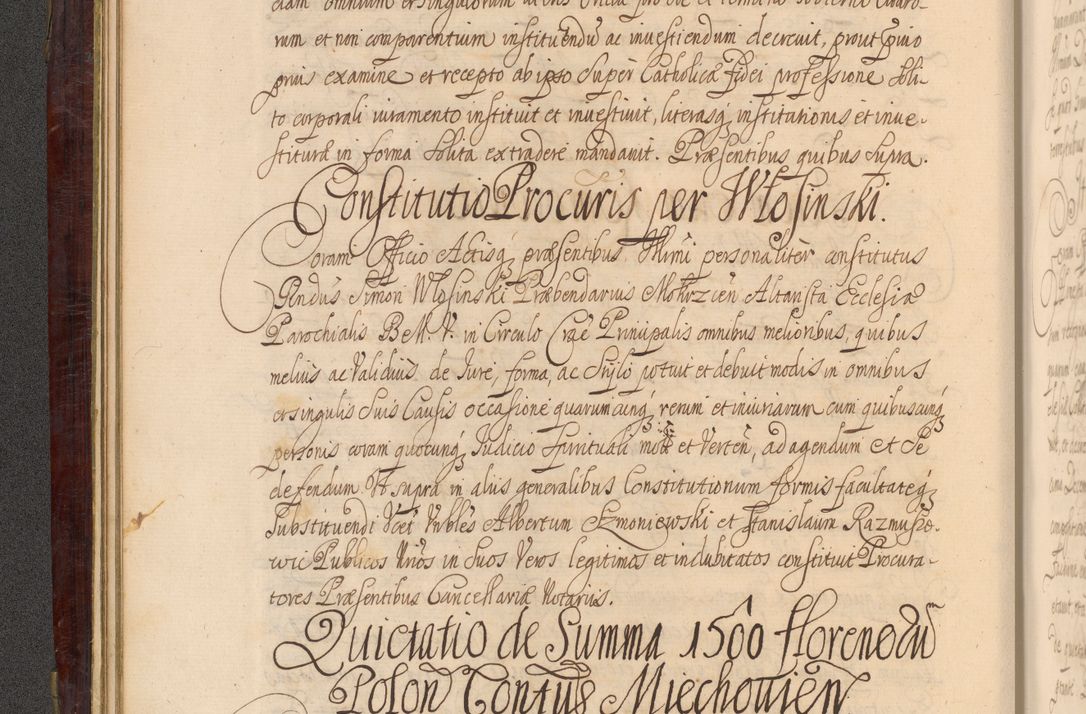 rum et non comparentium instituendū ac investiendum decrevit, prout prvio
prius examine et recepto ab ipso super Catholicæ Fidei professione soli-
to corporali iuramento instituit et investivit, literasq, institutionis et inve-
stituræ in forma solita extradere mandavit. Præsentibus quibus supra.
Constitutio Procuris per Włosinski.
Coram Officio Actisq præsentibus personaliter constitutus
Rndus Simon Włosinski Præbendarius Mokrzcēn Altarista Ecclesiæ
Parochialis B M. V. in Circulo Cræ Principalis omnibus melioribus, quibus
melius ac validius de Iure, forma, ac stylo potuit et debuit modis in omnibus
et singulis suis Causis occasione quarumcunq rerum et iniuriarum cum quibuscunq
personis coram quocunq Iudicio spirituali et Verten, ad agendum et se
defendum. Vt supra in aliis generalibus Constitutionum formis facultateq
substituendi Albertum Szmoniewski et Stanislaum Razmusze-
wic Publicos in suos Veros legitimos et indubitatos constituit Procura-
tores Præsentibus Cancellariæ Notariis.
Quietatio de Summa 1500 florenorū
Polon Contus Miechovien